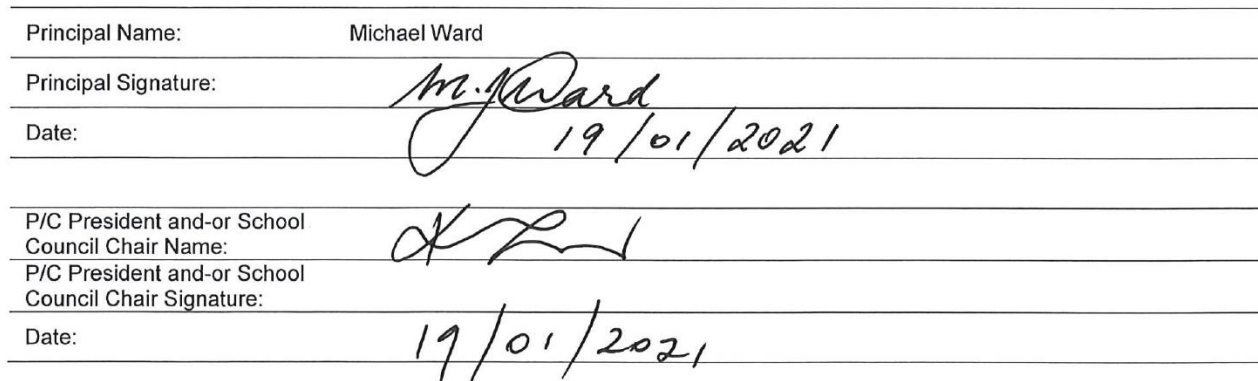 Principal Name: Michael Ward
Principal Signature: M.J Ward
Date: 19/01/2021
P/C President and-or School
Council Chair Name:
P/C President and-or School
Council Chair Signature:
Date: 19/01/2021